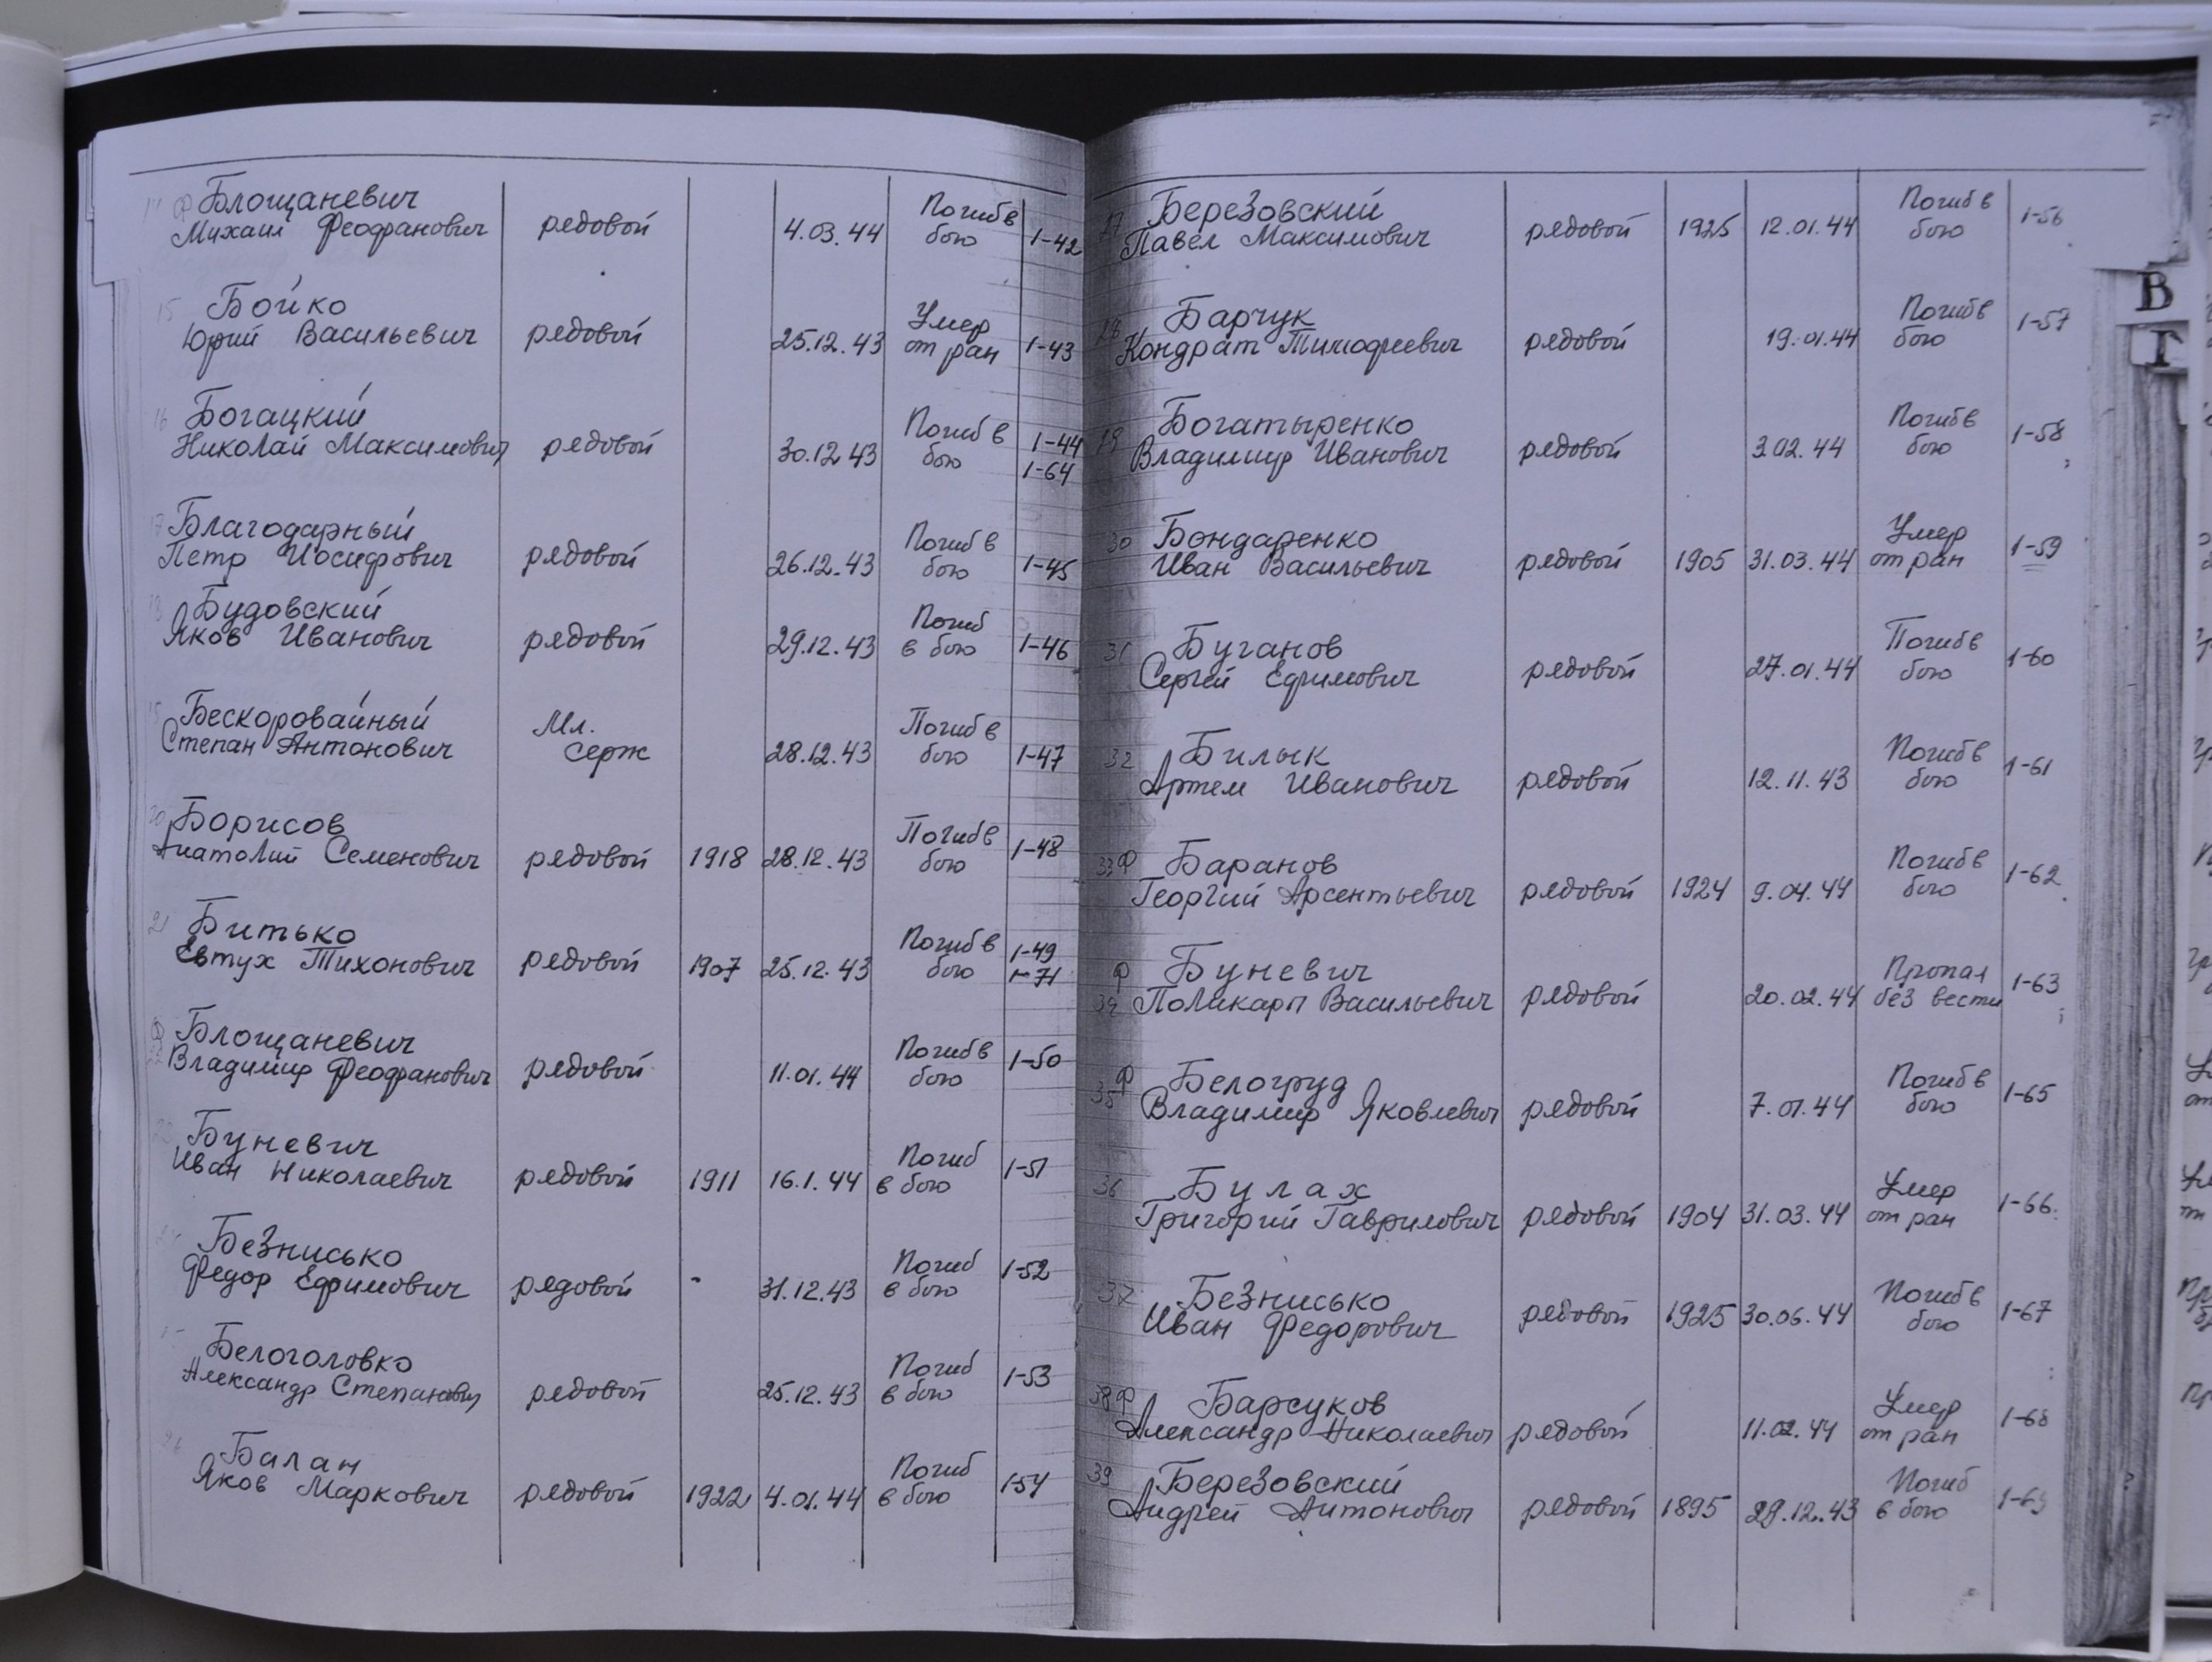 Блощаневич
Михаил Феофранович рядовой 4.03.44 Погиб в бою 1-42
15 Бойко
Юрий Васильевич рядовой 25.12.43 Умер от ран 1-43
16 Богацкий
Николай Максимович рядовой 30.12.43 Погиб в бою 1-44 1-64
17 Благодарный
Петр Иосифович рядовой 26.12.43 Погиб в бою 1-45
Будовский
Яков Иванович рядовой 29.12.43 Погиб в бою 1-46
Бескоровайный
Степан Антонович Мл. серж 28.12.43 Погиб в бою 1-47
20 Борисов
Анатолий Семенович рядовой 1918 28.12.43 Погиб в бою 1-48
21 Битько
Евтух Тихонович рядовой 1907 25.12.43 Погиб в бою 1-49 1-71
Блощаневич
Владимир Феофранович рядовой 11.01.44 Погиб в бою 1-50
Буневич
Иван Николаевич рядовой 1911 16.1.44 Погиб в бою 1-51
Безнисько
Федор Ефимович рядовой - 31.12.43 Погиб в бою 1-52
Белоголовко
Александр Степанович рядовой 25.12.43 Погиб в бою 1-53
Балан
Яков Маркович рядовой 1922 4.01.44 Погиб в бою 1-54
27 Березовский
Павел Максимович рядовой 1925 12.01.44 Погиб в бою 1-56
28 Барчук
Кондрат Тимофеевич рядовой 19.01.44 Погиб в бою 1-57
29 Богатыренко
Владимир Иванович рядовой 3.02.44 Погиб в бою 1-58
30 Бондаренко
Иван Васильевич рядовой 1905 31.03.44 Умер от ран 1-59
31 Буганов
Сергей Ефимович рядовой 27.01.44 Погиб в бою 1-60
32 Билык
Артем Иванович рядовой 12.11.43 Погиб в бою 1-61
33 Ф Баранов
Георгий Арсентьевич рядовой 1924 9.04.44 Погиб в бою 1-62
Ф Буневич
34 Поликарп Васильевич рядовой 20.02.44 Пропал без вести 1-63
Ф Белогруд
35 Владимир Яковлевич рядовой 7.01.44 Погиб в бою 1-65
36 Булах
Григорий Гаврилович рядовой 1904 31.03.44 Умер от ран 1-66
37 Безнисько
Иван Федорович рядовой 1925 30.06.44 Погиб в бою 1-67
38 Ф Барсуков
Александр Николаевич рядовой 11.02.44 Умер от ран 1-68
39 Березовский
Андрей Антонович рядовой 1895 29.12.43 Погиб в бою
В
Г